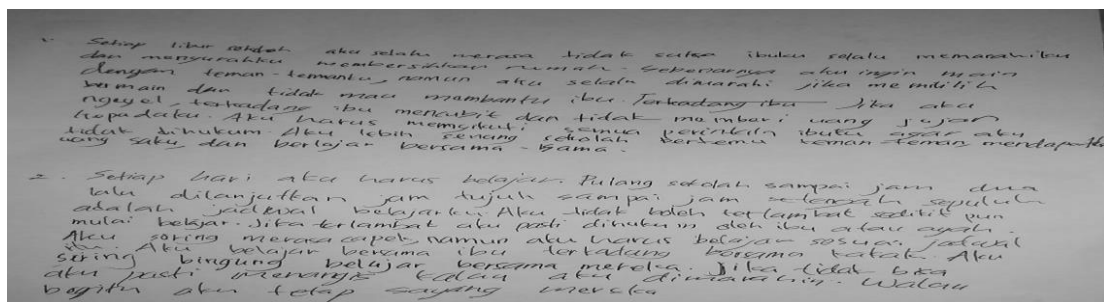 1. Setiap libur sekolah aku selalu merasa tidak suka ibuku selalu memarahiku
dan menyuruhku membersihkan rumah. Sebenarnya aku ingin main
dengan teman-temanku, namun aku selalu dimarahi jika memilih
bermain dan tidak mau membantu ibu. Terkadang ibu jika aku
ngeyel, terkadang ibu mencubit dan tidak memberi uang jajan
kepadaku. Aku harus mengikuti semua perintah ibuku agar aku
tidak dihukum. Aku lebih senang sekolah bertemu teman-teman, mendapatkan
uang saku, dan berlajar bersama-sama.
2. Setiap hari aku harus belajar. Pulang sekolah sampai jam dua
lalu dilanjutkan jam tujuh sampai jam sepuluh
adalah jadwal belajarku. Aku tidak boleh terlambat sedikit pun
mulai belajar. Jika terlambat aku pasti dihukum oleh ibu atau ayah.
Aku sering merasa capek, namun aku harus belajar sesuai jadwal
itu. Aku belajar bersama ibu terkadang bersama kakak. Aku
sering bingung belajar bersama mereka. Jika tidak bisa
aku pasti menangis kalau aku dimarahin. Walau
begitu aku tetap sayang mereka